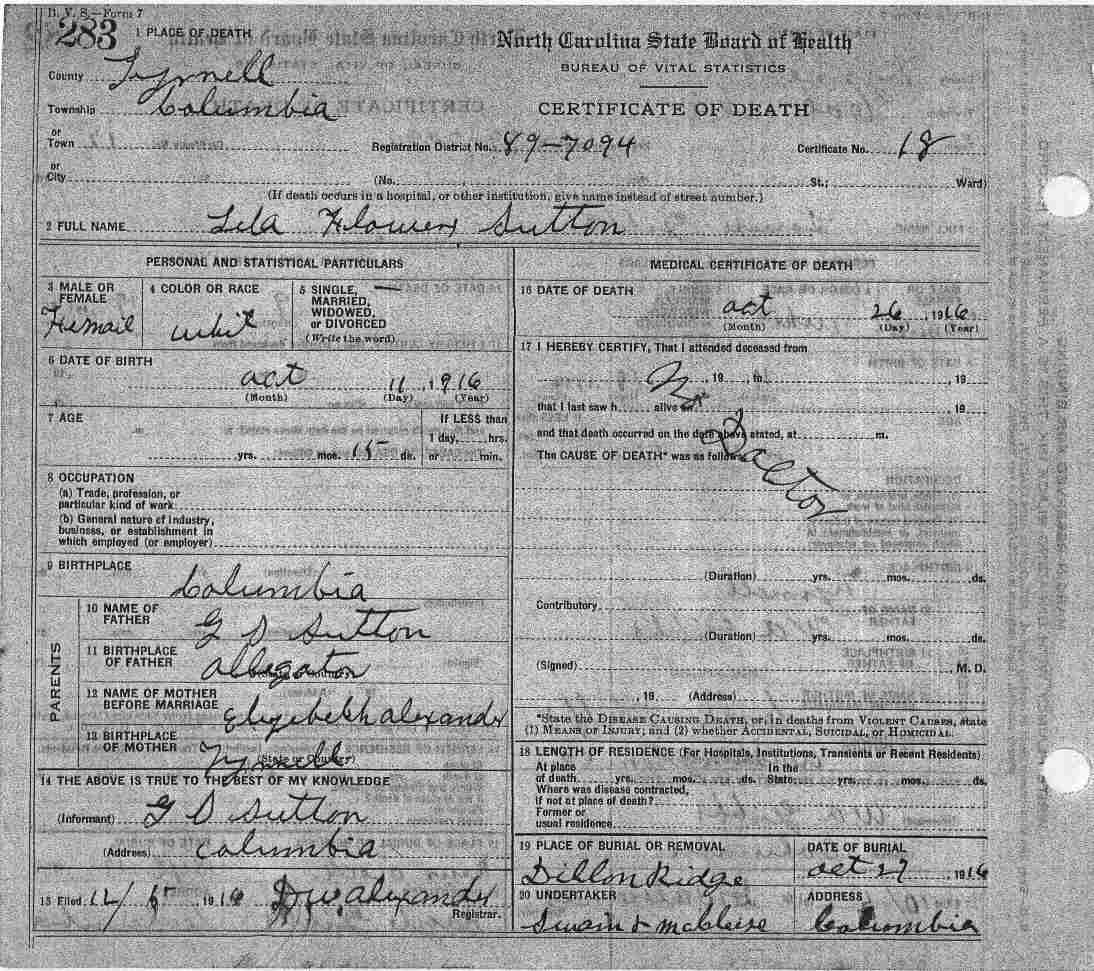 B. V. S.—Form 7
283
1 PLACE OF DEATH
North Carolina State Board of Health
BUREAU OF VITAL STATISTICS
CERTIFICATE OF DEATH
County Tyrrell
Township Columbia
or
Town
Registration District No. 89-7094
Certificate No. 18
or
City
(No. , St.; Ward)
(If death occurs in a hospital, or other institution, give name instead of street number.)
2 FULL NAME Lila Flowers Sutton
PERSONAL AND STATISTICAL PARTICULARS
3 MALE OR FEMALE Femail
4 COLOR OR RACE whit
5 SINGLE, MARRIED, WIDOWED, or DIVORCED (Write the word) —
6 DATE OF BIRTH
oct 11, 1916
(Month) (Day) (Year)
7 AGE
If LESS than
1 day, hrs.
yrs. mos. 15 ds. or min.
8 OCCUPATION
(a) Trade, profession, or
particular kind of work
(b) General nature of industry,
business, or establishment in
which employed (or employer)
9 BIRTHPLACE
Columbia
PARENTS
10 NAME OF FATHER
G D Sutton
11 BIRTHPLACE OF FATHER
Alligator
12 NAME OF MOTHER BEFORE MARRIAGE
Elyzibekh alexander
13 BIRTHPLACE OF MOTHER
(State or Country)
Tyrrell
14 THE ABOVE IS TRUE TO THE BEST OF MY KNOWLEDGE
(Informant) G D Sutton
(Address) Columbia
15 Filed 12/ 1916 alexander
Registrar.
MEDICAL CERTIFICATE OF DEATH
16 DATE OF DEATH
oct 26, 1916
(Month) (Day) (Year)
17 I HEREBY CERTIFY, That I attended deceased from
, 19 , to , 19
that I last saw h alive on , 19
and that death occurred on the date above stated, at m.
The CAUSE OF DEATH* was as follows:
No Docttor
(Duration) yrs. mos. ds.
Contributory
(Duration) yrs. mos. ds.
(Signed) M. D.
, 19 . (Address)
*State the DISEASE CAUSING DEATH, or, in deaths from VIOLENT CAUSES, state
(1) MEANS OF INJURY; and (2) whether ACCIDENTAL, SUICIDAL, or HOMICIDAL.
18 LENGTH OF RESIDENCE (For Hospitals, Institutions, Transients or Recent Residents)
At place of death yrs. mos. ds. In the State yrs. mos. ds.
Where was disease contracted,
if not at place of death?
Former or
usual residence
19 PLACE OF BURIAL OR REMOVAL
Dillon Ridge
DATE OF BURIAL
oct 27, 1916
20 UNDERTAKER
Swain & McCleise
ADDRESS
Columbia